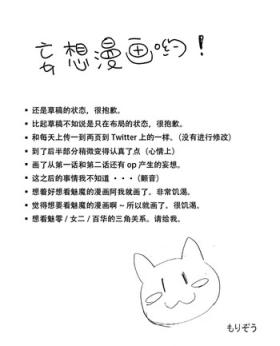 妄想漫画哟！
▪ 还是草稿的状态，很抱歉。
▪ 比起草稿不如说是只在布局的状态，很抱歉。
▪ 和每天上传一到两页到 Twitter 上的一样。（没有进行修改）
▪ 到了后半部分稍微变得认真了点（心情上）
▪ 画了从第一话和第二话还有 op 产生的妄想。
▪ 这之后的事情我不知道 ・・・（颤音）
▪ 想着好想看魅魔的漫画阿我就画了。非常饥渴。
▪ 觉得想要看魅魔的漫画啊 ~ 所以就画了。很饥渴。
▪ 想看魅零 / 女二 / 百华的三角关系。请给我。
もりぞう